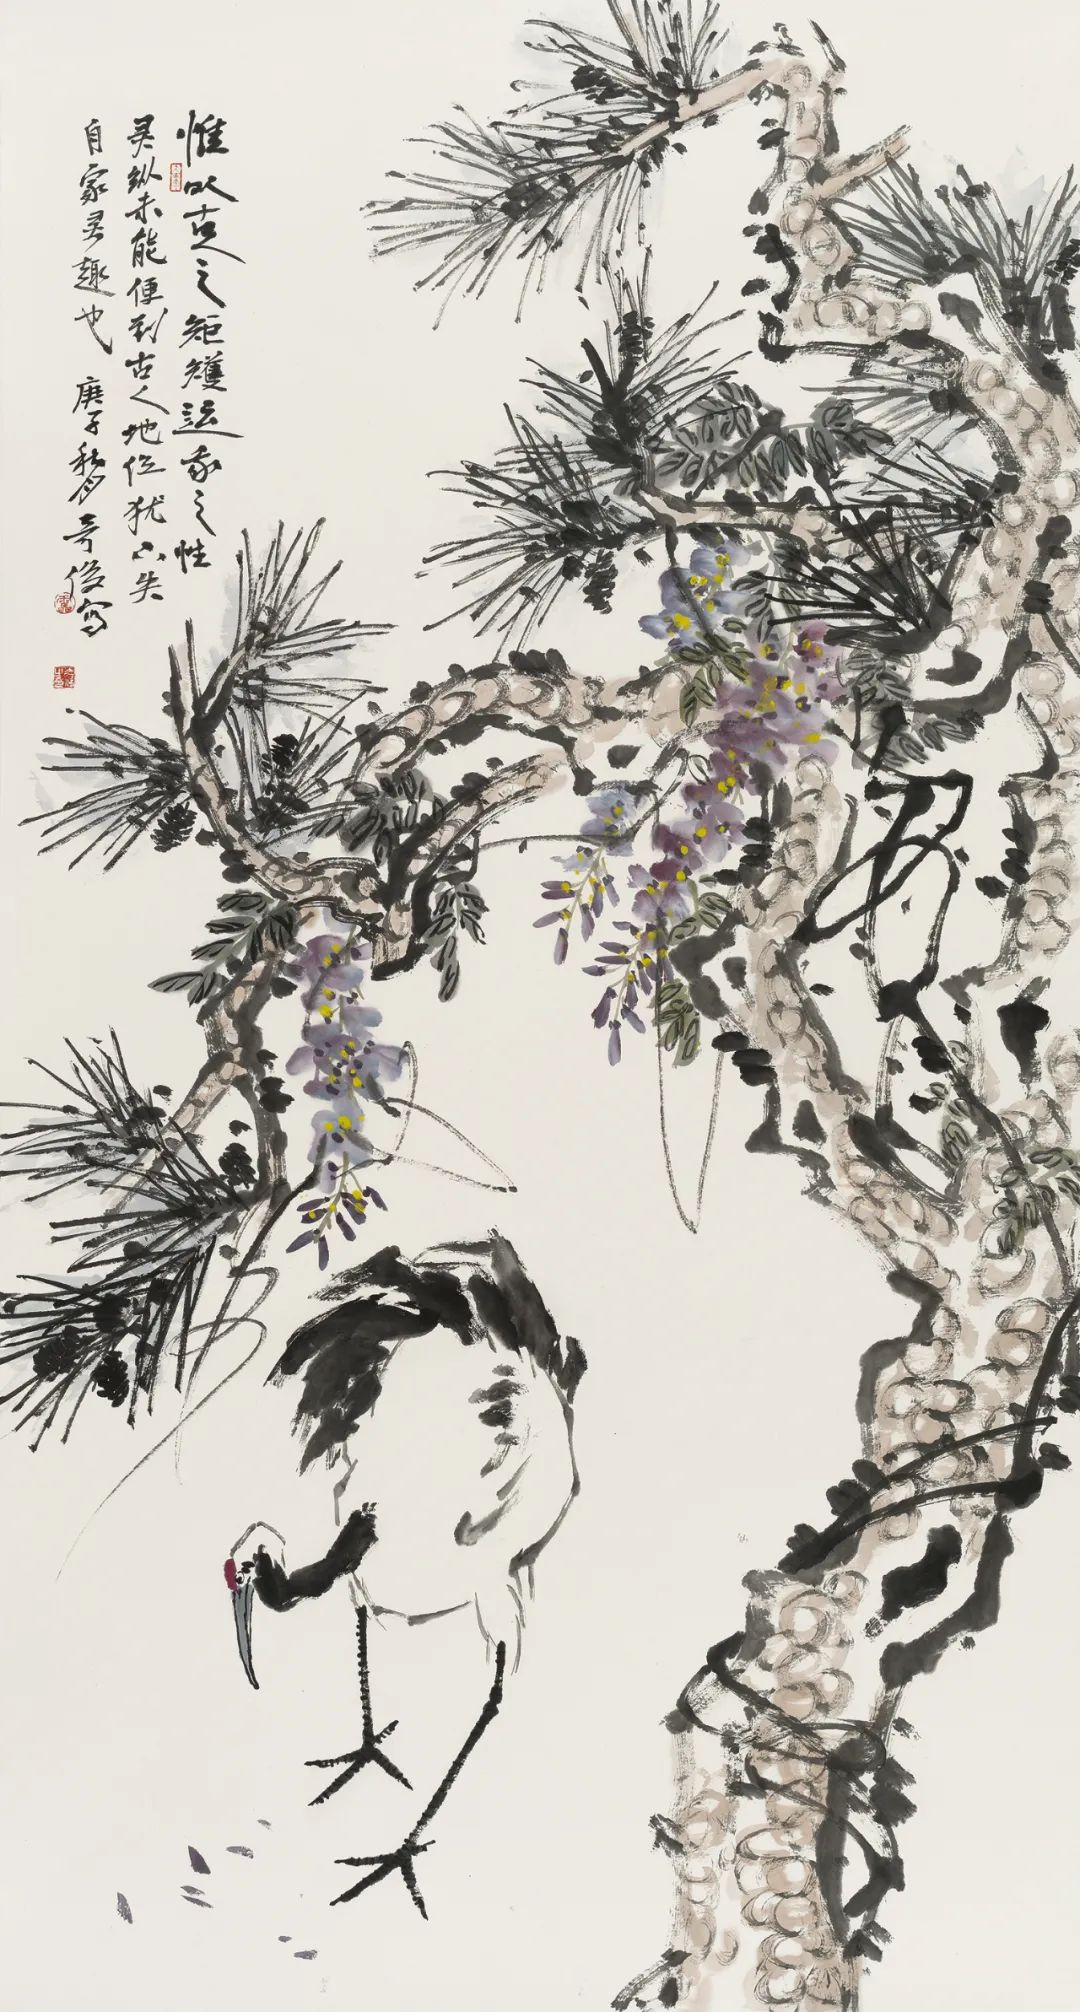 惟以古人之矩矱运我之性
灵纵未能便到古人地位犹不失
自家灵趣也 庚子秋月 奇俊写